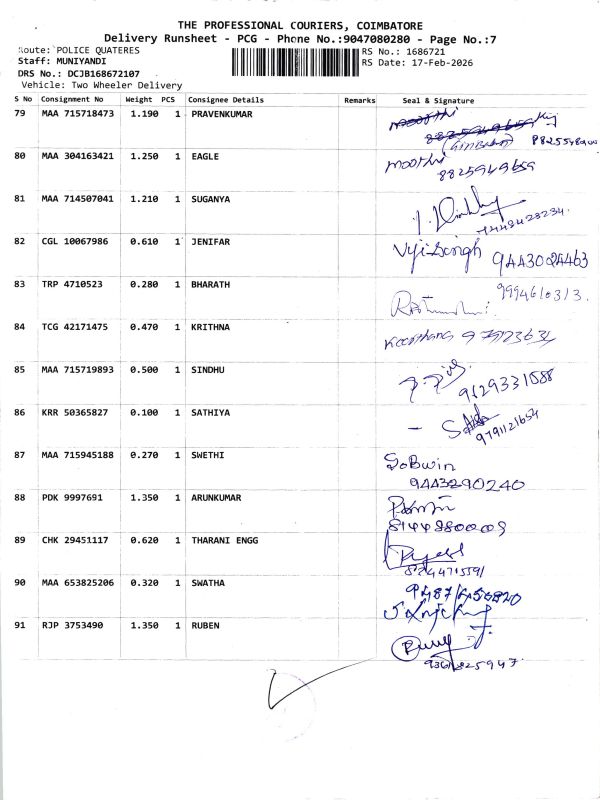 THE PROFESSIONAL COURIERS, COIMBATORE
Delivery Runsheet - PCG - Phone No.:9047080280 - Page No.:7
Route: POLICE QUATERES RS No.: 1686721
Staff: MUNIYANDI RS Date: 17-Feb-2026
DRS No.: DCJB168672107
Vehicle: Two Wheeler Delivery
S No Consignment No Weight PCS Consignee Details Remarks Seal & Signature
79 MAA 715718473 1.190 1 PRAVENKUMAR
80 MAA 304163421 1.250 1 EAGLE moorthi
8825949659
81 MAA 714507041 1.210 1 SUGANYA
82 CGL 10067986 0.610 1 JENIFAR
9443024463
83 TRP 4710523 0.280 1 BHARATH
84 TCG 42171475 0.470 1 KRITHNA
85 MAA 715719893 0.500 1 SINDHU
9629331588
86 KRR 50365827 0.100 1 SATHIYA
9791121654
87 MAA 715945188 0.270 1 SWETHI GoBwin
9443290240
88 PDK 9997691 1.350 1 ARUNKUMAR
89 CHK 29451117 0.620 1 THARANI ENGG
90 MAA 653825206 0.320 1 SWATHA
91 RJP 3753490 1.350 1 RUBEN